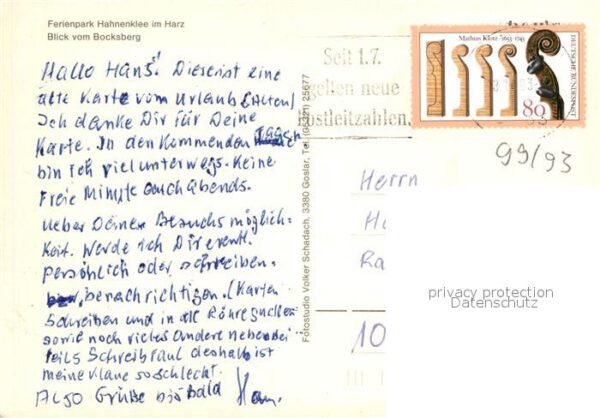 Ferienpark Hahnenklee im Harz
Blick vom Bocksberg
Hallo Hans! Dieses ist eine
alte Karte vom Urlaub (Alten)
Ich danke Dir für Deine
Karte. In den Kommenden Tagen
bin ich viel unterwegs. Keine
Freie Minute auch abends.
Ueber Deine Besuchs möglich-
keit. Werde ich Dir event.
Persöhlich oder schreiben.
benachrichtigen. (Karten
Schreiben und in die Röhre gucken
sowie noch vieles andere nebenbei
teils Schreibfaul deshalb ist
meine Klaue so schlecht.
Also Grüße bis bald
Fotostudio Volker Schadach, 3380 Goslar, Tel. (05321) 25677
Seit 1.7.
gelten neue
Postleitzahlen
Mathias Klotz · 1653-1743
80
DEUTSCHE BUNDESPOST
99/93
Herrn
H
Ra
10
privacy protection
Datenschutz